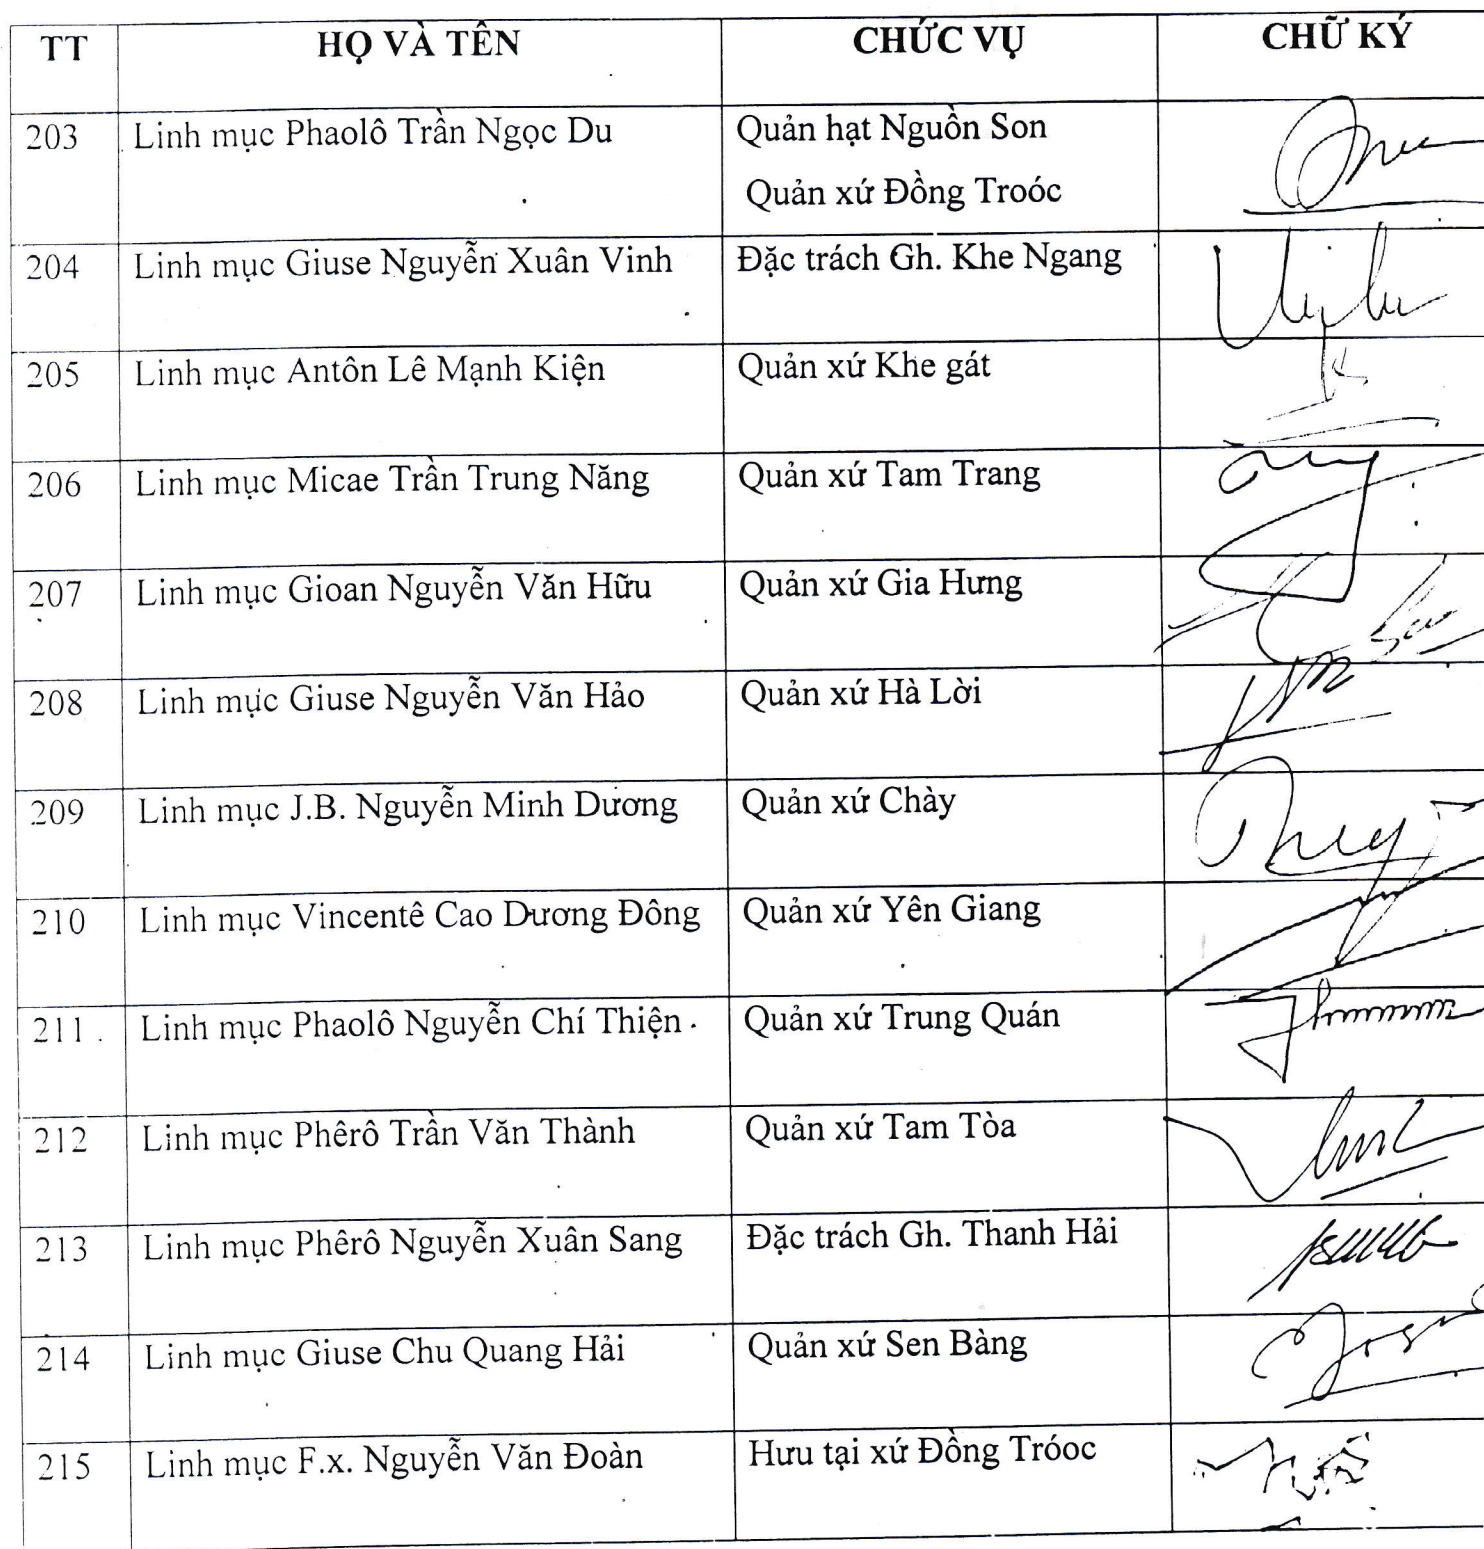 TT HỌ VÀ TÊN CHỨC VỤ CHỮ KÝ
203 Linh mục Phaolô Trần Ngọc Du Quản hạt Nguồn Son
Quản xứ Đồng Troóc
204 Linh mục Giuse Nguyễn Xuân Vinh Đặc trách Gh. Khe Ngang
205 Linh mục Antôn Lê Mạnh Kiện Quản xứ Khe gát
206 Linh mục Micae Trần Trung Năng Quản xứ Tam Trang
207 Linh mục Gioan Nguyễn Văn Hữu Quản xứ Gia Hưng
208 Linh mục Giuse Nguyễn Văn Hảo Quản xứ Hà Lời
209 Linh mục J.B. Nguyễn Minh Dương Quản xứ Chày
210 Linh mục Vincentê Cao Dương Đông Quản xứ Yên Giang
211 Linh mục Phaolô Nguyễn Chí Thiện Quản xứ Trung Quán
212 Linh mục Phêrô Trần Văn Thành Quản xứ Tam Tòa
213 Linh mục Phêrô Nguyễn Xuân Sang Đặc trách Gh. Thanh Hải
214 Linh mục Giuse Chu Quang Hải Quản xứ Sen Bàng
215 Linh mục F.x. Nguyễn Văn Đoàn Hưu tại xứ Đồng Tróoc